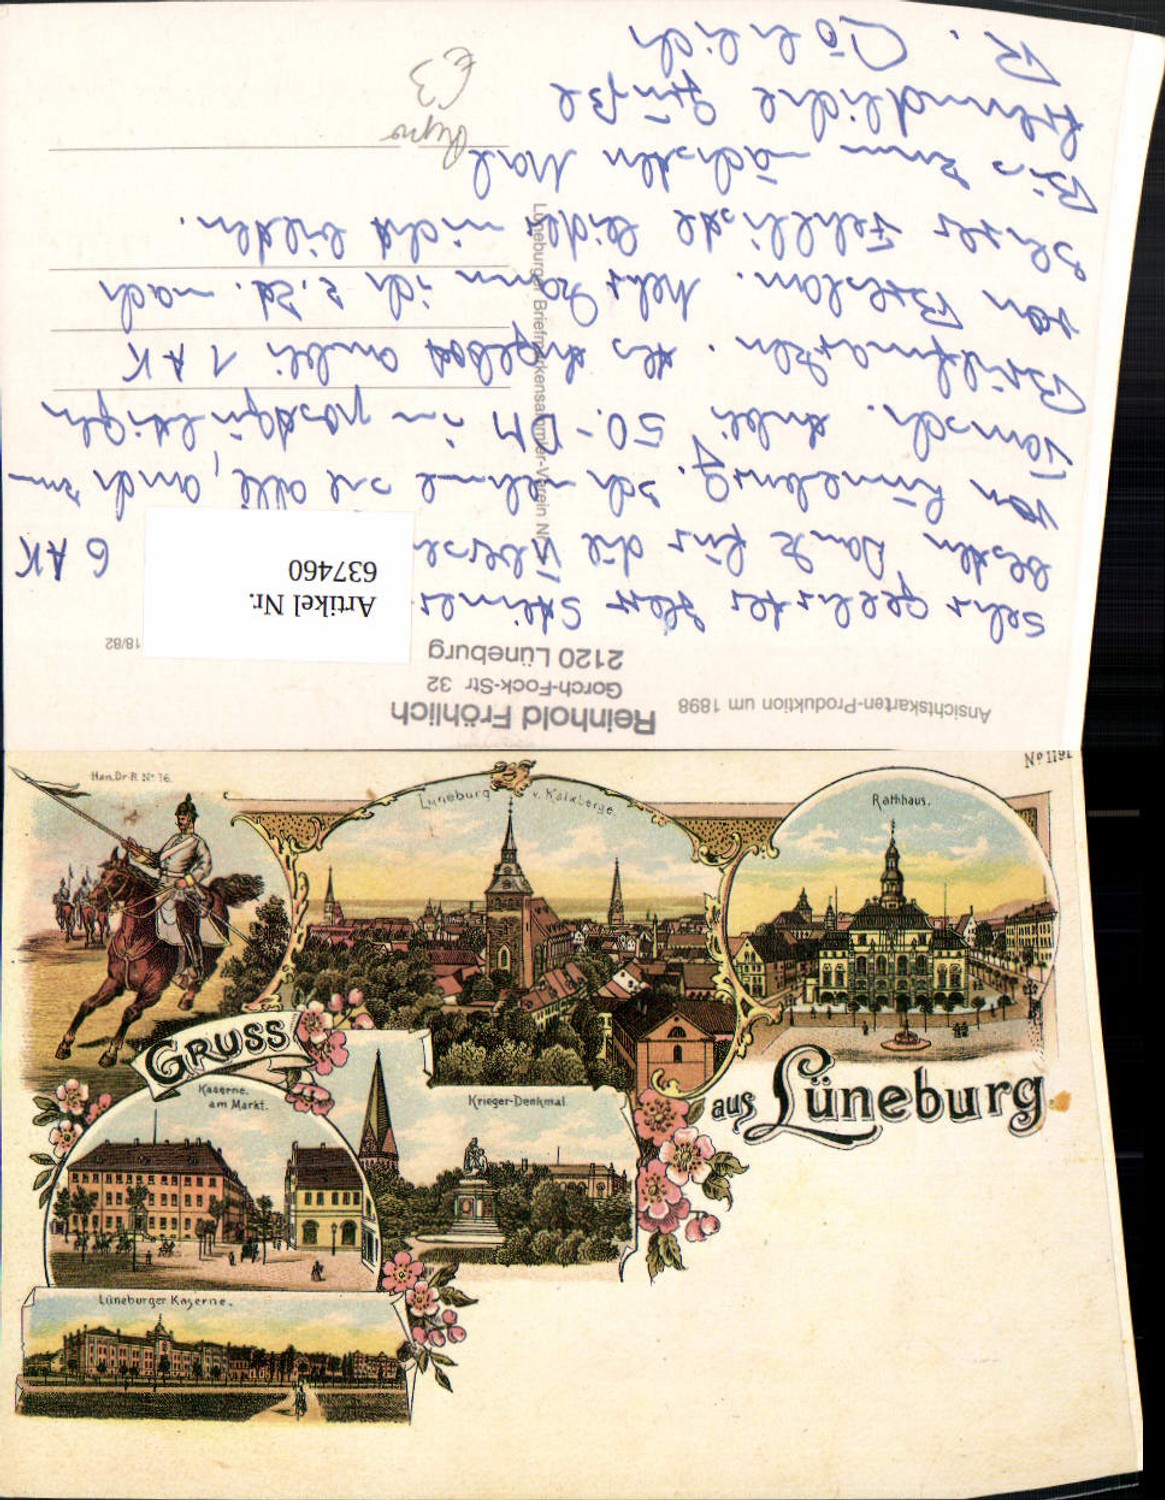 Ansichtskarten-Produktion um 1898
Reinhold Fröhlich
Gorch-Fock-Str 32
2120 Lüneburg
18/82
Artikel Nr.
637460
Lüneburger Briefmarkensammler-Verein
Sehr geehrter Herr Steiner
besten Dank für die 6 AK
von Lüneburg. Ich nehme sie alle, auch zum
Tausch. Anbei 50.- DM in postgültigen
Briefmarken. Als Angebot anbei 1 AK
von Breslau. Mehr kann ich z. Zt. nach
Ihrer Fehlliste leider nicht bieten.
Bis zum nächsten Mal
freundliche Grüße
R. Fröhlich
Repro
€3
Han. Dr. R. Nº 16.
Nº 1191
Lüneburg v. Kalkberge.
Rathhaus.
GRUSS
aus Lüneburg.
Kaserne.
am Markt.
Krieger-Denkmal
Lüneburger Kaserne.